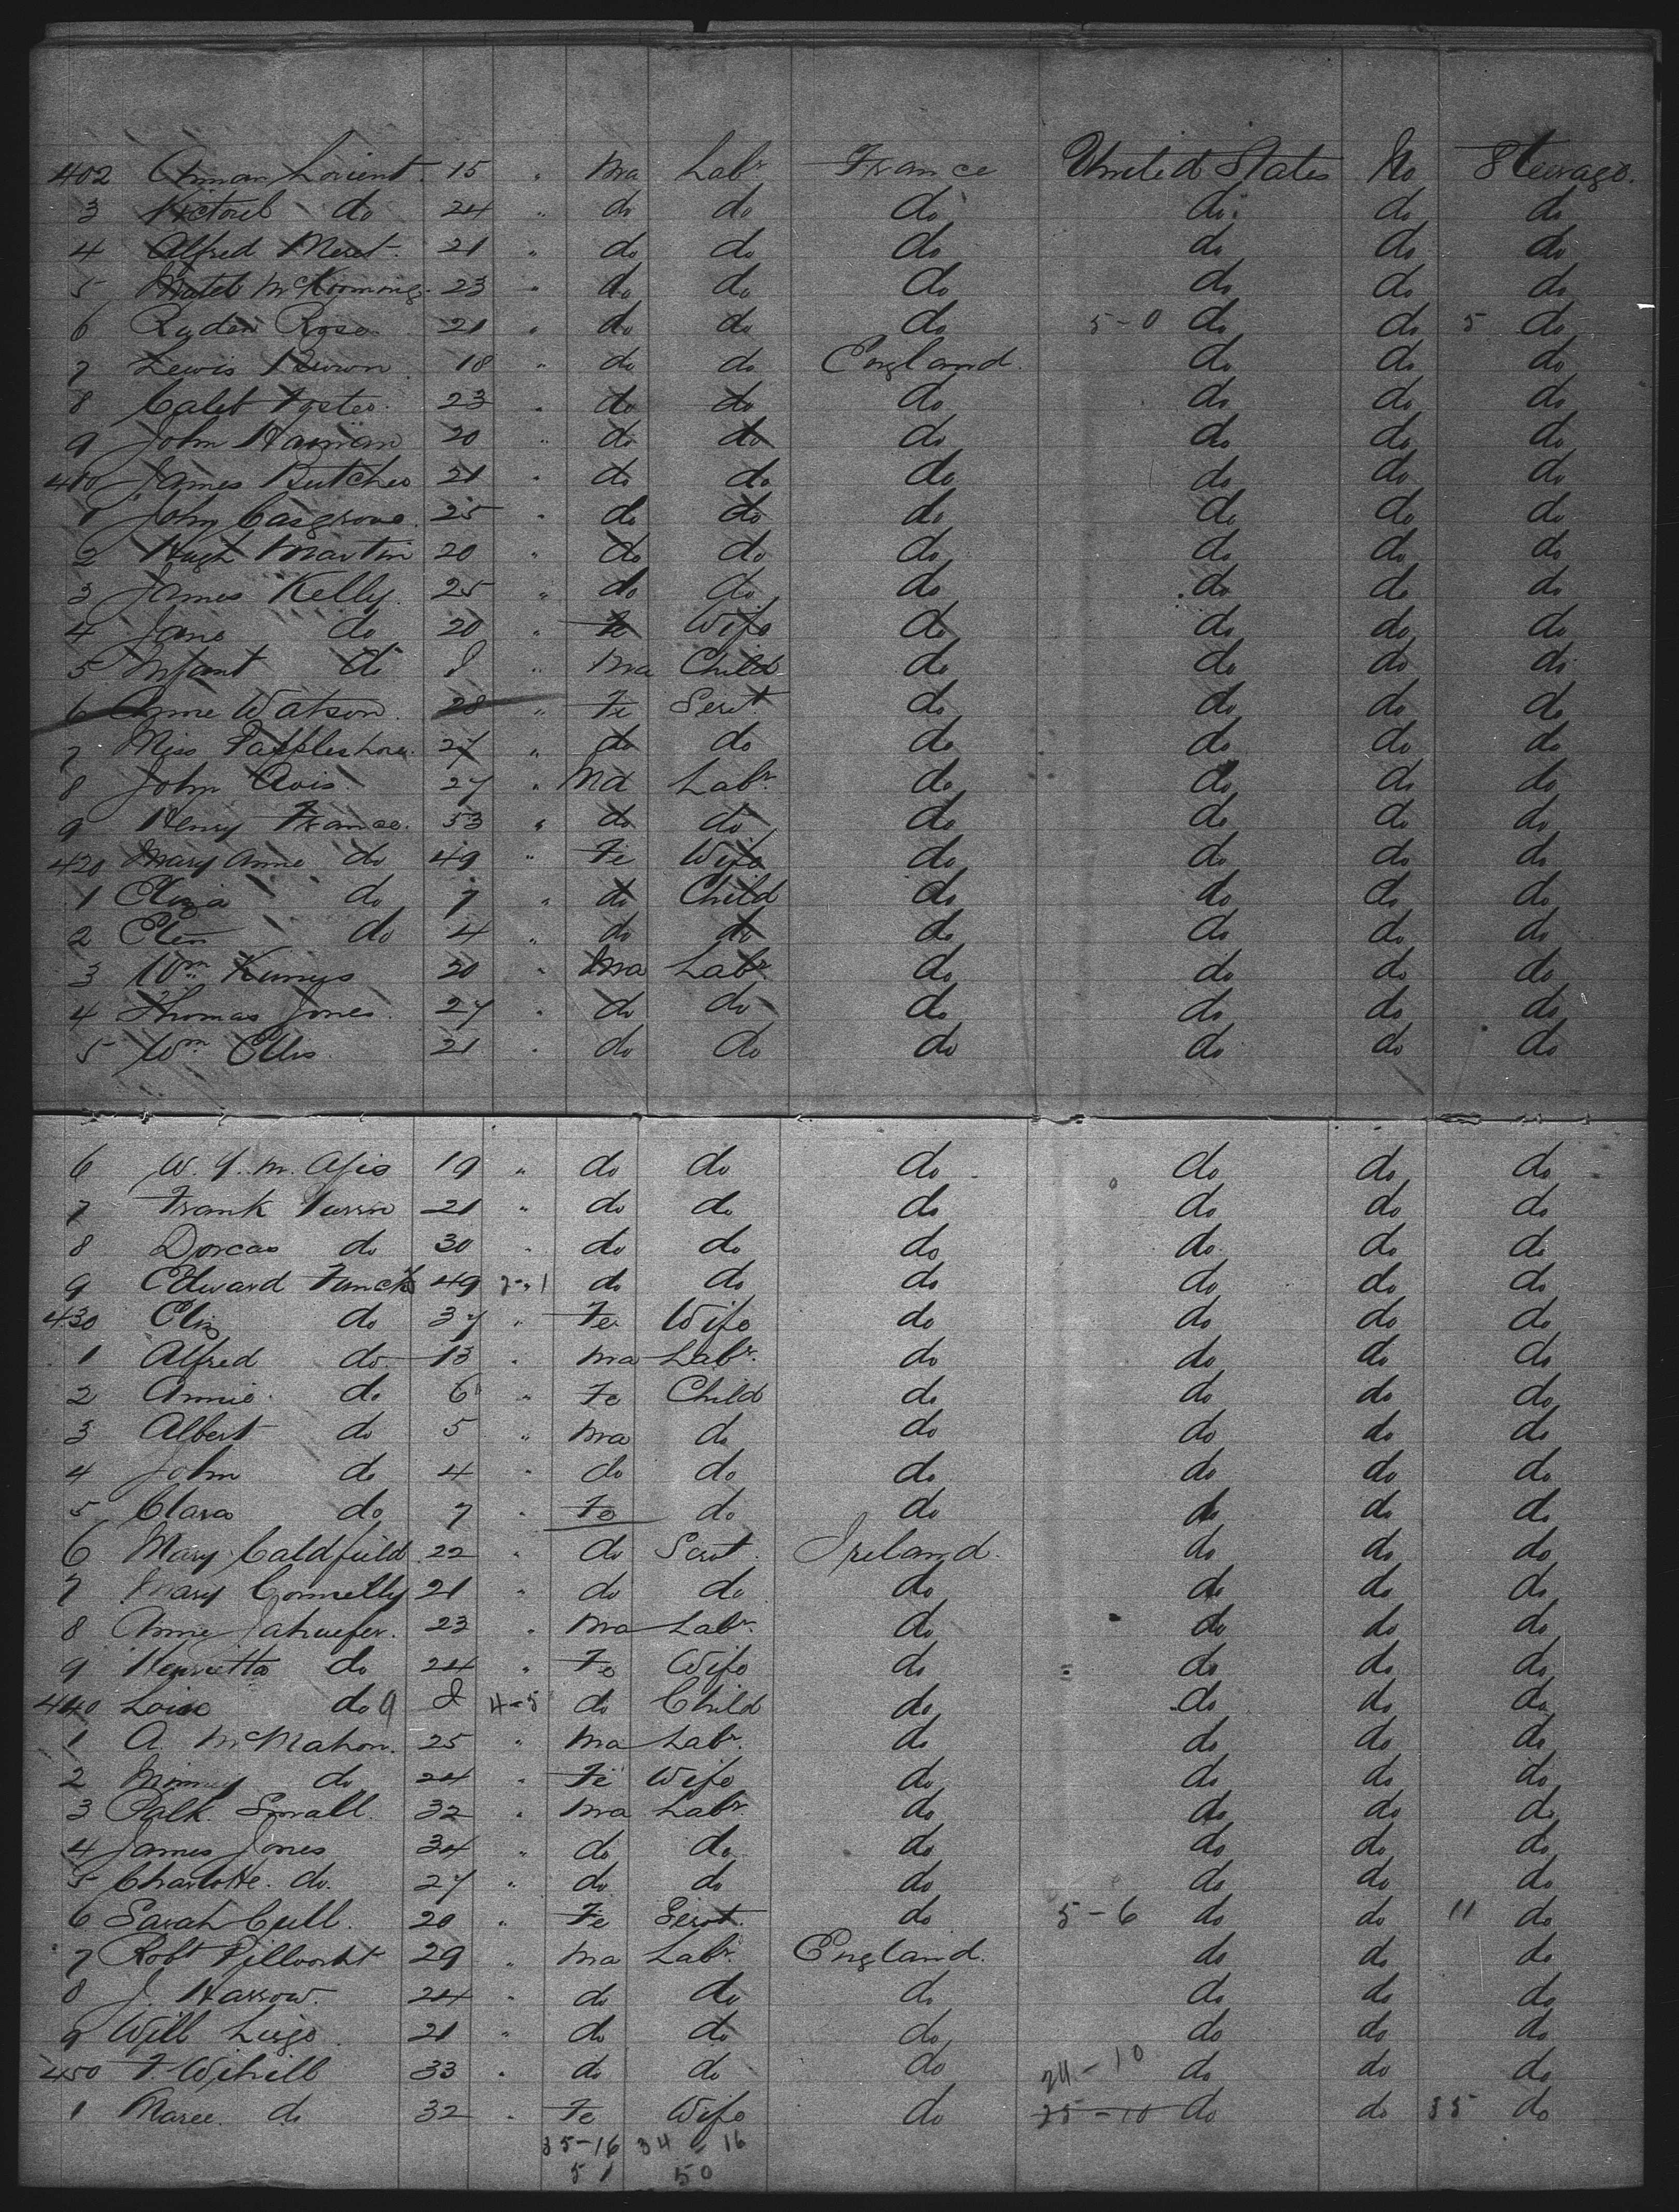 402 Lorient 15 " Ma Labr France United States No Steerage.
3 do 24 " do do do do do do
4 Alfred Meret 21 " do do do do do do
5 23 " do do do do do do
6 Rose 21 " do do do 5-0 do do 5 do
7 Lewis Brown 18 " do do England do do do
8 Caleb 23 " do do do do do do
9 John Harman 20 " do do do do do do
410 James Butcher 21 " do do do do do do
1 John Casgrove 25 " do do do do do do
2 Hugh Martin 20 " do do do do do do
3 James Kelly 25 " do do do do do do
4 Jane do 20 " Fe Wife do do do do
5 Infant do " Ma Child do do do do
6 Anne Watson 28 " Fe Servt do do do do
7 Miss 27 " do do do do do do
8 John Avis 27 " Ma Labr do do do do
9 Henry France 53 " do do do do do do
420 Mary Anne do 49 " Fe Wife do do do do
1 Eliza do 7 " do Child do do do do
2 Ellen do 4 " do do do do do do
3 Wm 20 " Ma Labr do do do do
4 Thomas Jones 27 " do do do do do do
5 Wm Ellis 21 " do do do do do do
6 W. 19 " do do do do do do
7 Frank 21 " do do do do do do
8 Dorcas do 30 " do do do do do do
9 Edward Funck 49 do do do do do do
430 Eliz do 37 " Fe Wife do do do do
1 Alfred do 13 " Ma Labr do do do do
2 Annie do 6 " Fe Child do do do do
3 Albert do 5 " Ma do do do do do
4 John do 4 " do do do do do do
5 Clara do 7 " Fe do do do do do
6 Mary Caldfield 22 " do Servt Ireland do do do
7 Mary Connelly 21 " do do do do do do
8 Annie 23 " Ma Labr do do do do
9 Henrietta do 24 " Fe Wife do do do do
440 do 9 4-5 do Child do do do do
1 A. McMahon 25 " Ma Labr do do do do
2 Minny do 24 " Fe Wife do do do do
3 Patk Small 32 " Ma Labr do do do do
4 James Jones 34 " do do do do do do
5 Charlotte do 27 " do do do do do do
6 Sarah Cull 20 " Fe Servt do 5-6 do do 11 do
7 Robt 29 " Ma Labr England do do do
8 J. Harrow 24 " do do do do do do
9 Will 21 " do do do do do do
450 F. Wihill 33 " do do do 24-10 do do do
1 Maree do 32 " Fe Wife do 25-10 do do 35 do
35-16 34-16
51 50